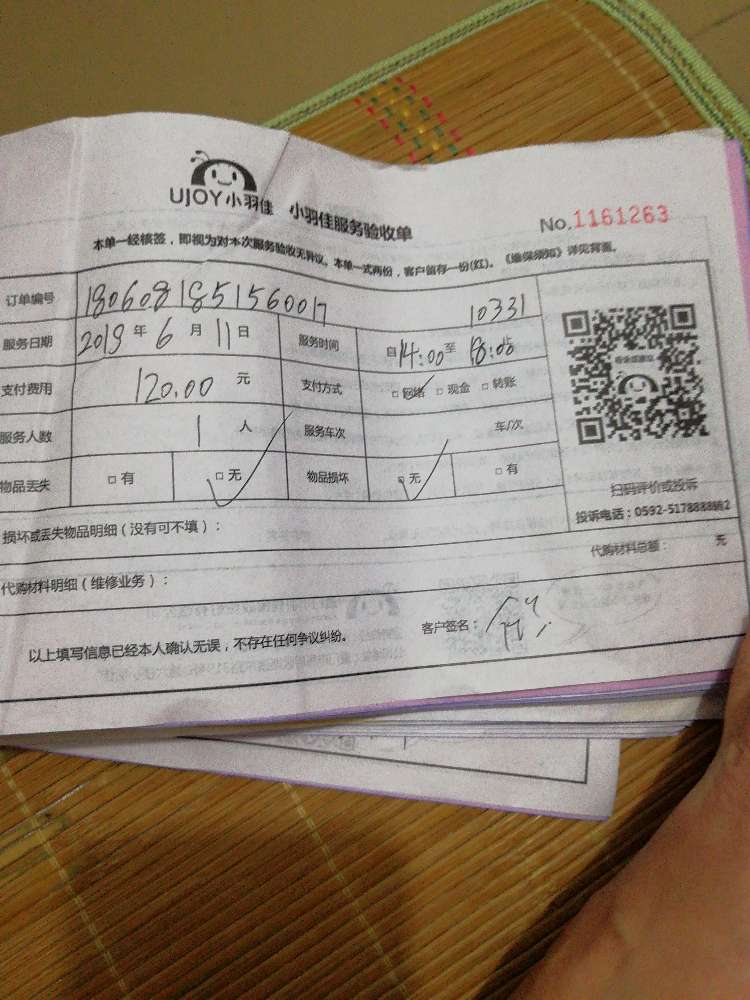 UJOY小羽佳 小羽佳服务验收单
No.1161263
本单一经核签，即视为对本次服务验收无异议。本单一式两份，客户留存一份(红)。《维保须知》详见背面。
订单编号 180608185156001 10331
服务日期 2018 年 6 月 11 日 服务时间 自 14:00 至 18:00 止
支付费用 120.00 元 支付方式 □网络 □现金 □转账
服务人数 1 人 服务车次 车/次
物品丢失 □有 □无 物品损坏 □无 □有
扫码评价或投诉
投诉电话：0592-5178888
损坏或丢失物品明细（没有可不填）：
代购材料总额： 无
代购材料明细（维修业务）：
以上填写信息已经本人确认无误，不存在任何争议纠纷。 客户签名：